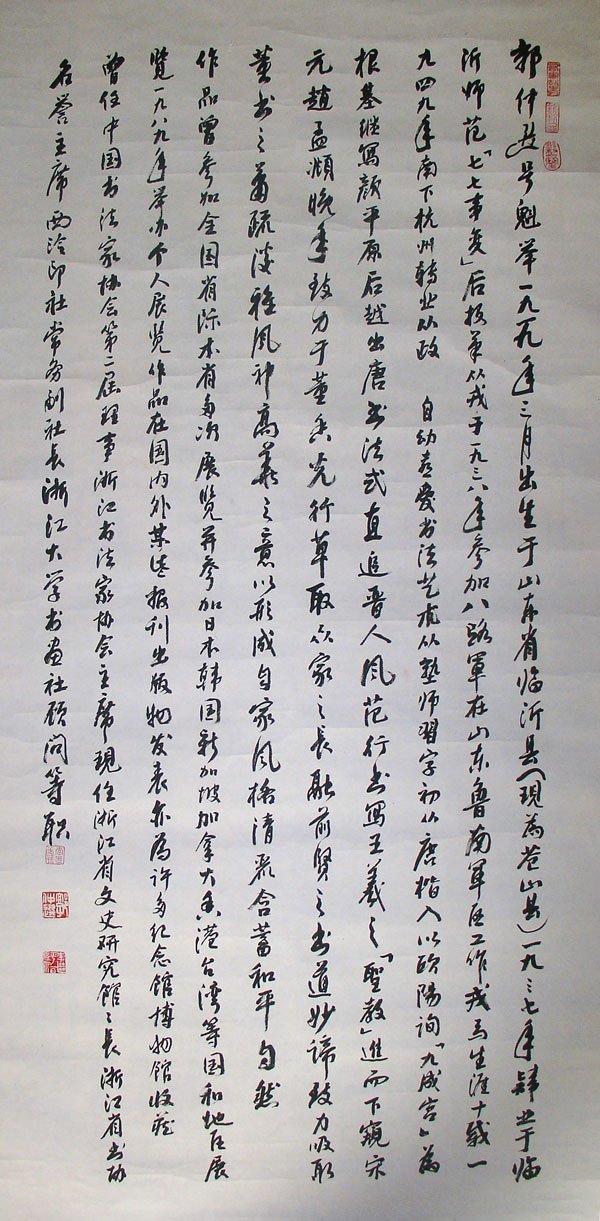 郭仲选号魁举一九一九年三月出生于山东省临沂县（现为苍山县）一九三七年肄业于临
沂师范「七七事变」后投笔从戎于一九三八年参加八路軍在山东鲁南軍区工作戎马生涯十载一
九四九年南下杭州转业从政 自幼喜爱书法艺术从塾师習字初从唐楷入以欧陽询「九成宫」為
根基继写颜平原后越出唐书法式直追晋人风范行书写王羲之「聖教」進而下窥宋
元趙孟頫晚年致力于董香光行草取众家之長融前贤之书道妙谛致力吸取
董书之萧疏淡雅风神高義之意以形成自家风格清爽含蓄和平自然
作品曾参加全国省际本省多次展览并参加日本韩国新加坡加拿大香港台湾等国和地区展
览一九八九年举办个人展览作品在国内外某些报刊出版物发表亦為许多纪念馆博物馆收藏
曾任中国书法家协会第二届理事浙江书法家协会主席現任浙江省文史研究館々長浙江省书协
名誉主席西泠印社常务副社長浙江大学书画社顾问等职